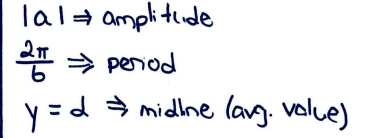 |a| ⇒ amplitude
2π/b ⇒ period
y = d ⇒ midline (avg. value)